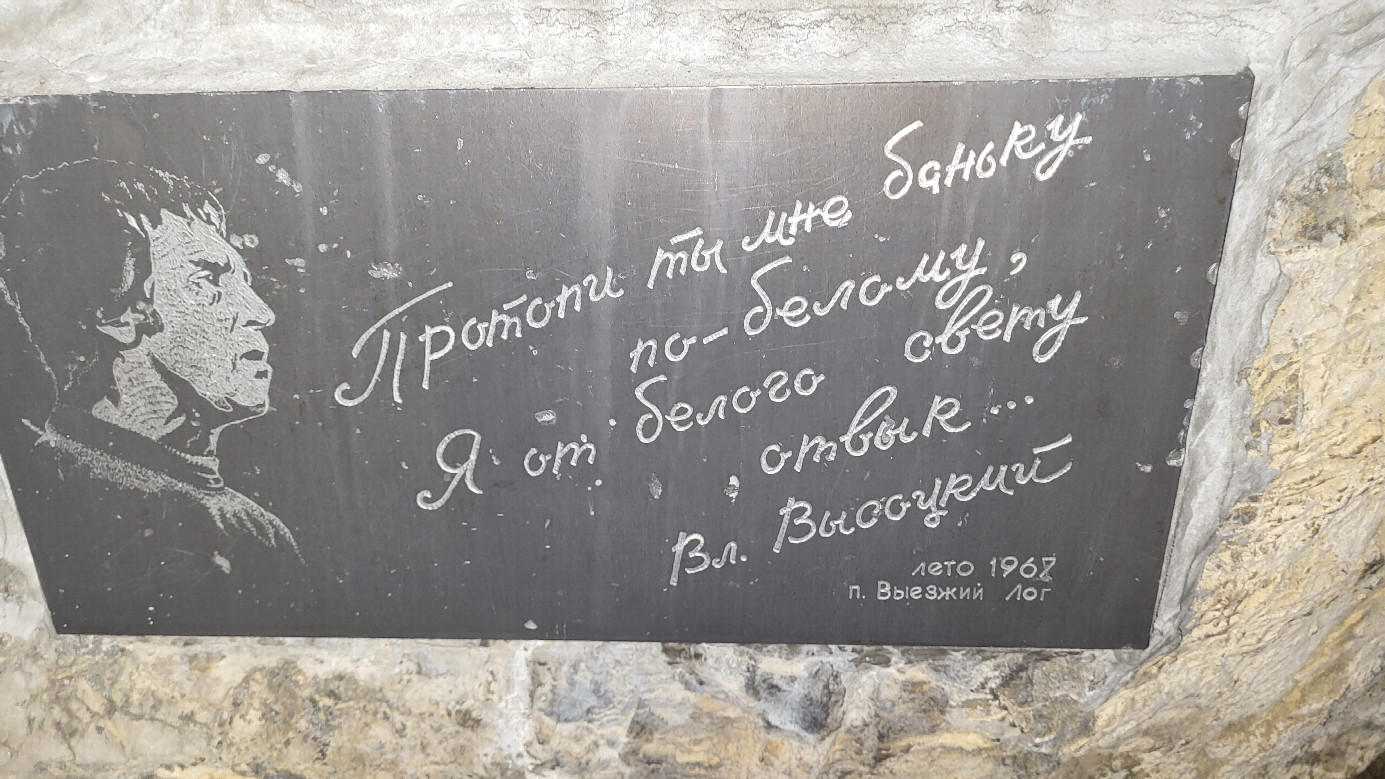 Протопи ты мне баньку
по-белому,
Я от белого свету
отвык...
Вл. Высоцкий
лето 1968
п. Выезжий Лог